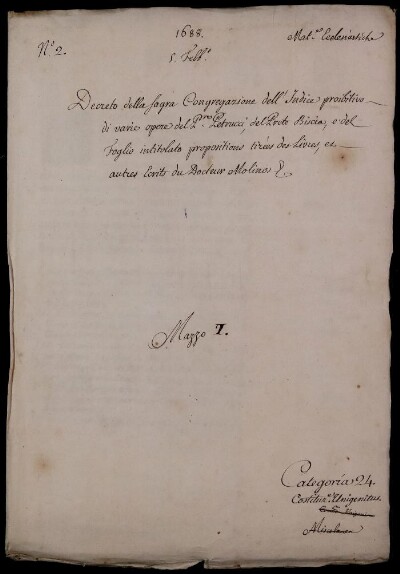 1688.
N.º 2.
Mat.ᵉ Ecclesiastiche
5. Febb.º
Decreto della Sagra Congregazione dell'Indice proibitivo
di varie opere del P.ʳᵒ Petrucci, del Prete Biscia, e del
Foglio intitolato propositions tirées des Livres, et
autres écrits du Docteur Molinos
Mazzo I.
Categoria 24.
Costituz.ᵉ Unigenitus.